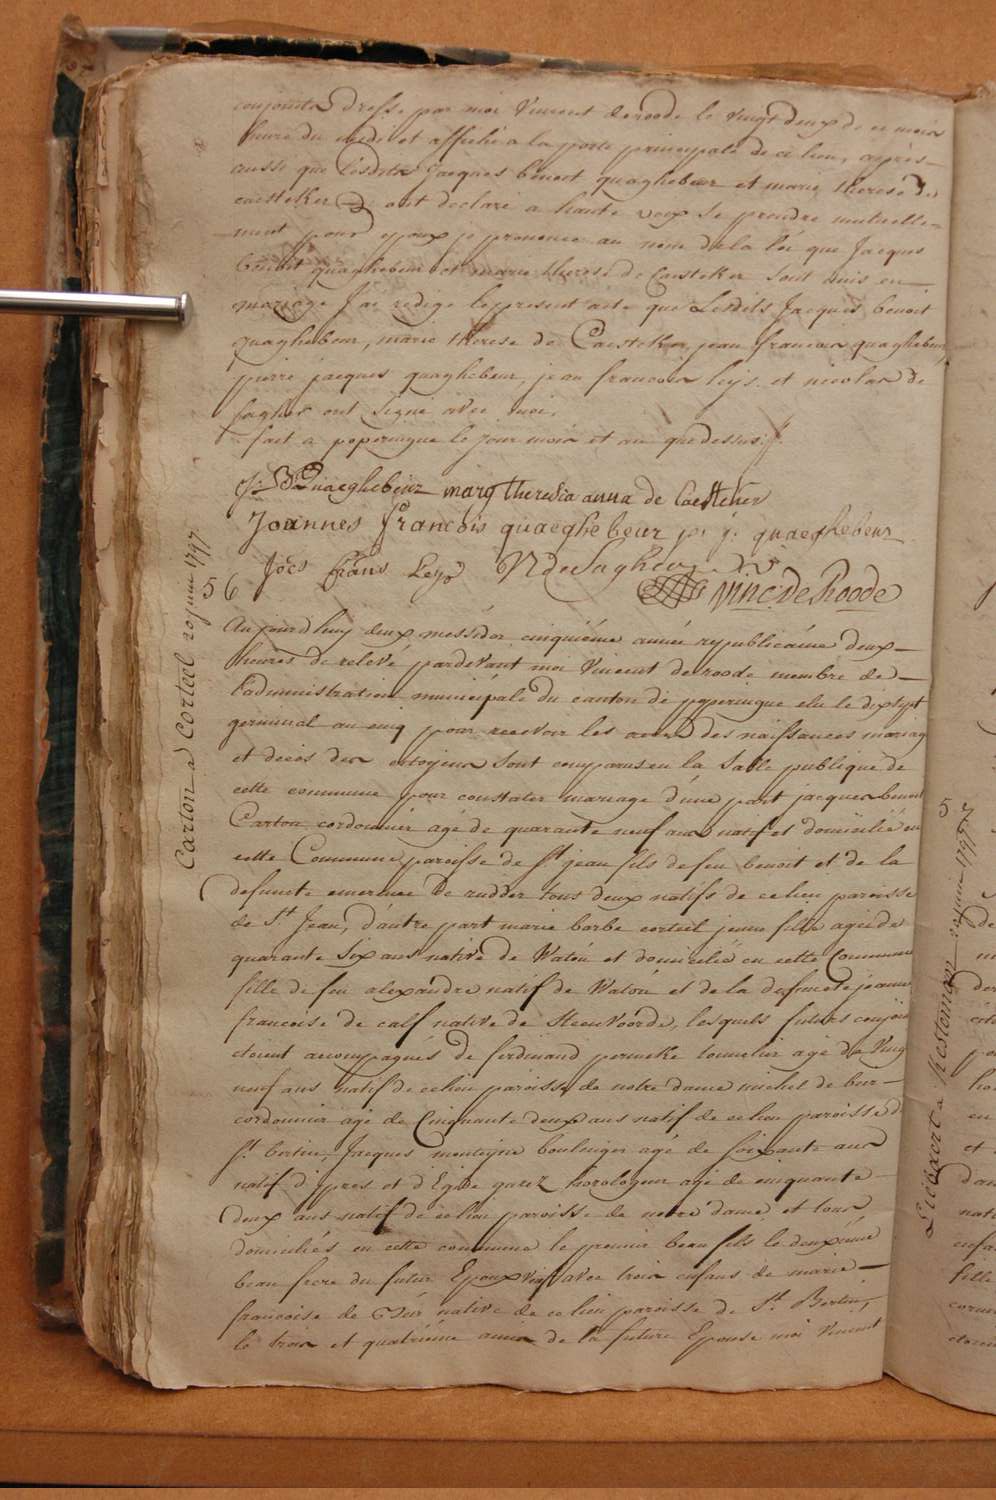 conjoints dressé par moi Vincent deroode le vingt deux de ce mois
heure du midi et affiché a la porte principale de ce lieu, après
aussi que lesdits Jacques benoit quaghebeur et marie therese de
caesteker ont declaré a haute voix se prendre mutuelle-
ment pour epoux je prononce au nom de la loi que Jacques
benoit quaghebeur et marie therese de Caesteker sont unis en
mariage J'ai redigé le present acte que Lesdits Jacques benoit
quaghebeur, marie therese de Caesteker, jean francois quaghebeur,
pierre jacques quaghebeur, jean francois leys et nicolas de
sagher ont signé avec moi.
fait a poperingue le jour mois et an que dessus
J: B Quaeghebeur marg theresia anna de Caesteker
Joannes francois quaeghebeur p. j. quaeghebeur
Jocs frans Leys N de Saghere
Vinc: De Roode
Carton a Corteel 20 juin 1797
56
Aujourd'huy deux messidor cinquième année republicaine deux
heures de relevé pardevant moi Vincent deroode membre de
l'administration municipale du canton de poperingue elu le dix sept
germinal an cinq pour recevoir les actes des naissances mariag
et décès des citoyens sont comparus en la Salle publique de
cette commune pour constater mariage d'une part jacques benoit
Carton cordonnier agé de quarante neuf ans natif et domicilié en
cette Commune paroisse de St jean fils de feu benoit et de la
defuncte emerence de rudder tous deux natifs de ce lieu paroisse
de St Jean, d'autre part marie barbe corteil jeune fille agée de
quarante Six ans native de Watou et domiciliée en cette Commune
fille de feu alexandre natif de Watou et de la defuncte jeanne
francoise de calf native de Steenvoorde, lesquels futurs conjoin
etoient accompagnés de ferdinand permeke tonnelier agé de Vingt
neuf ans natif de ce lieu paroisse de notre dame michel de bur-
cordonnier agé de Cinquante deux ans natif de ce lieu paroisse de
St bertin, Jacques monteigne boulanger agé de soixante ans
natif d'ypres et d'Egide garez horologeur agé de cinquante
deux ans natif de ce lieu paroisse de notre dame et tous
domiciliés en cette commune le premier beau fils le deuxième
beau frere du futur Epoux avec trois enfans de marie
francoise de native de ce lieu paroisse de St Bertin,
le trois et quatrième amis de la future Epouse moi Vincent
5
Liefoort a 20 juin 1797